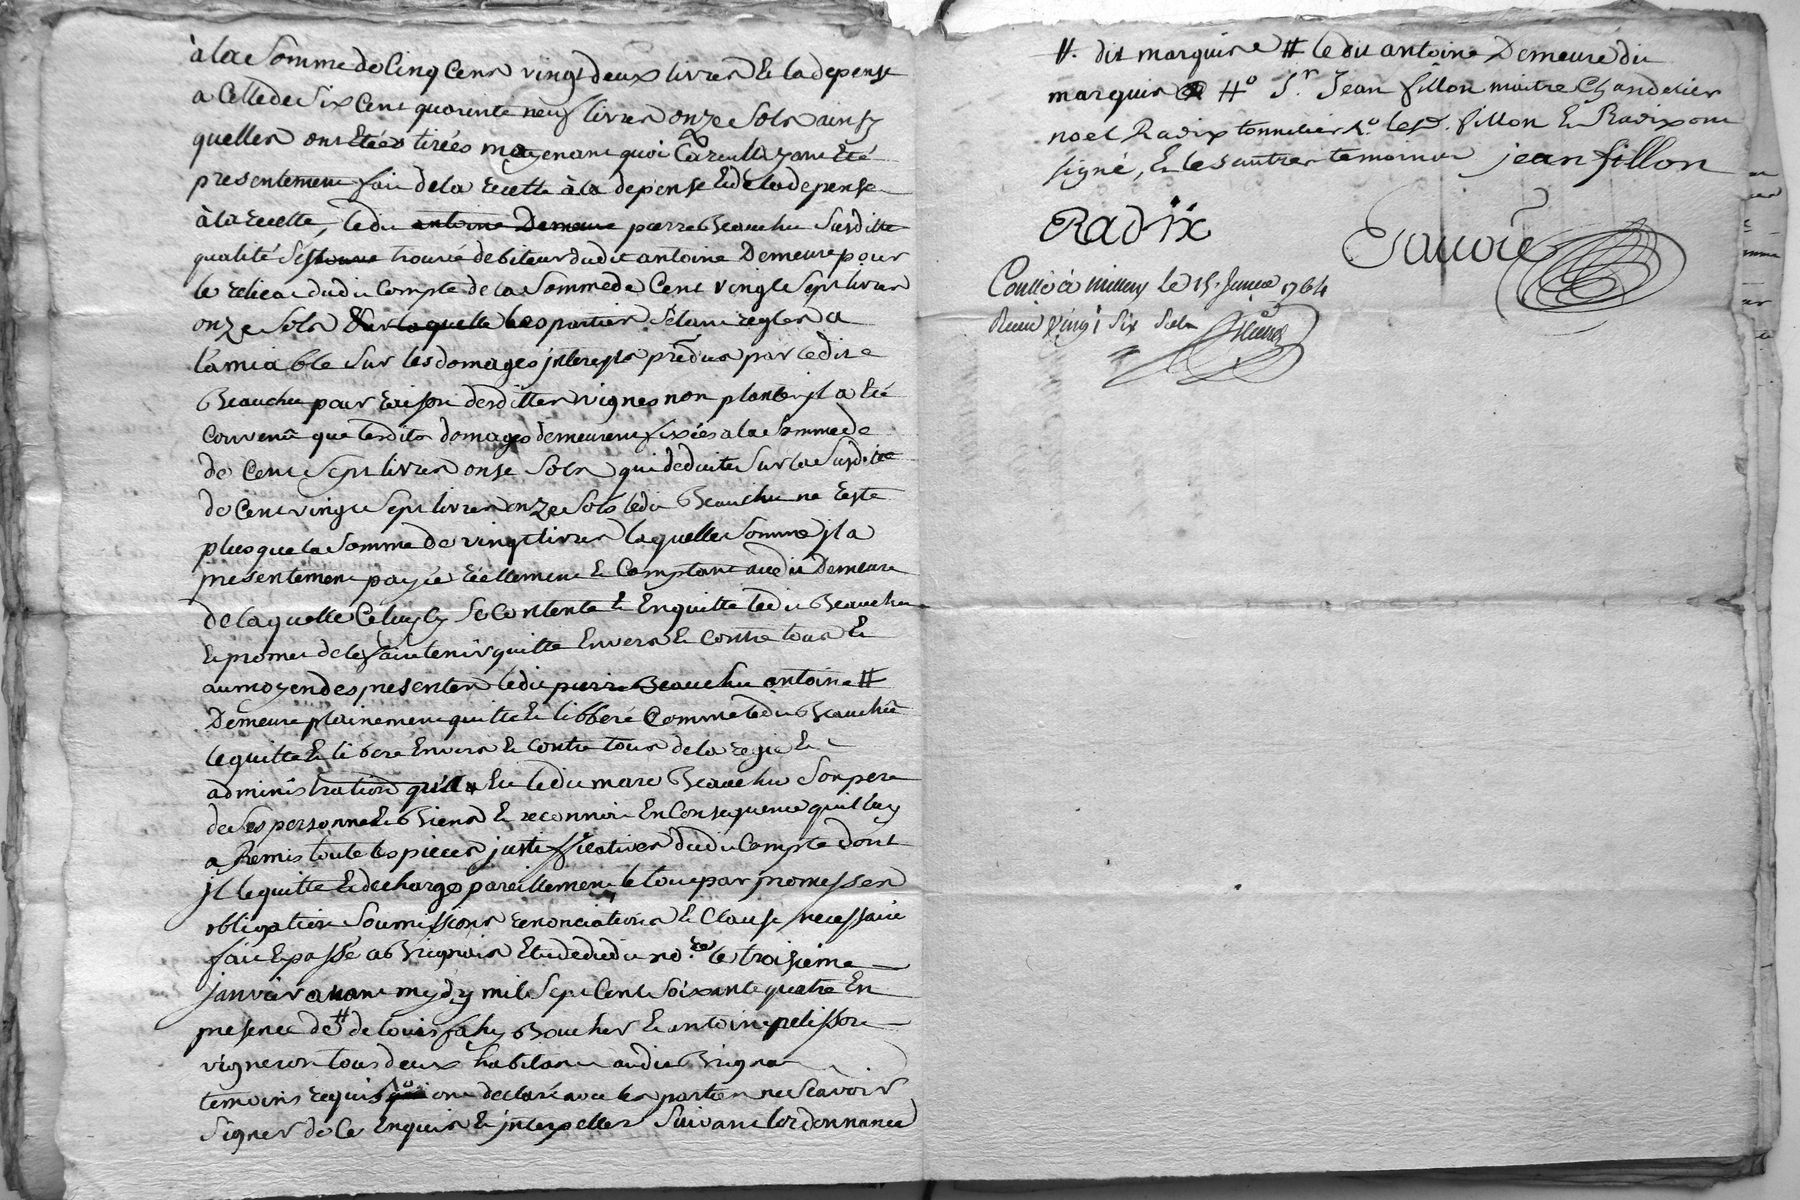 à la somme de Cinq Cens vingt deux livres Et la depense
a Celle de Six Cent quarente neuf livres onze Sols ainsy
quelles ont Etées tirées moyenant quoi Calculs ayant Eté
presentement fait de la recette à la depense Et de la depense
à la recette, ledit antoine Demeure pierre Beauchu Susditte
qualité S'est trouvé debiteur dudit antoine Demeure pour
le reliqat dudit Compte de la Somme de Cent vingt Sept livres
onze Sols Sur laquelle les parties S'etant reglés a
l'amiable Sur les domages jnterests prétdus par ledit
Beauchu pour raison desdittes vignes non plantés jl a Eté
Convenû que lesdits domages demeurent fixées a la Somme de
de Cent Sept livres onse Sols qui deduite Sur la Susditte
de Cent vingt Sept livres onze Sols ledit Beauchu ne reste
plus que la Somme de vingt livres laquelle Somme jl a
presentement payée réellement Et Comptant audit Demeure
de laquelle Celuy cy Se Contente Et En quitte ledit Beauchu
Et promet de le faire tenir quitte Envers Et Contre tous Et
au moyen des presentes ledit pierre Beauchu antoine #
Demeure plainement quitte Et libberé Comme ledit Beauchû
le quitte Et libere Envers Et Contre tous de la regie Et
administration qu'il a Eu ledit marc Beauchu Son pere
de Ses personne Et Biens Et reconnoit En Consequence quil luy
a Remis toute les pieces justifficatives dudit Compte dont
jl le quitte Et decharge pareillement le tout par promesses
obligation Soumissions renonciations Et Clause necessaire
fait Et passé a Brignais Etude dudit no.re le troisieme
janvier avant mydy mil Sept Cent Soixante quatre En
presence de # de louis fahy Boucher Et antoine pelisson
vigneron tous deux habitans audit Brignais
temoins requis qui ont declaré avec les parties ne Scavoir
Signer de Ce Enquis Et jnterpellés Suivant lordonnance
#. dit marquis # ledit antoine Demeure dit
marquis # S.r Jean fillon maitre Chandelier
noel Radix tonnelier led. fillon Et Radix ont
signé, Et les autres temoins jean fillon
Radix
Controlé à millery le 15. Janvier 1764
Recu vingt Six Sols